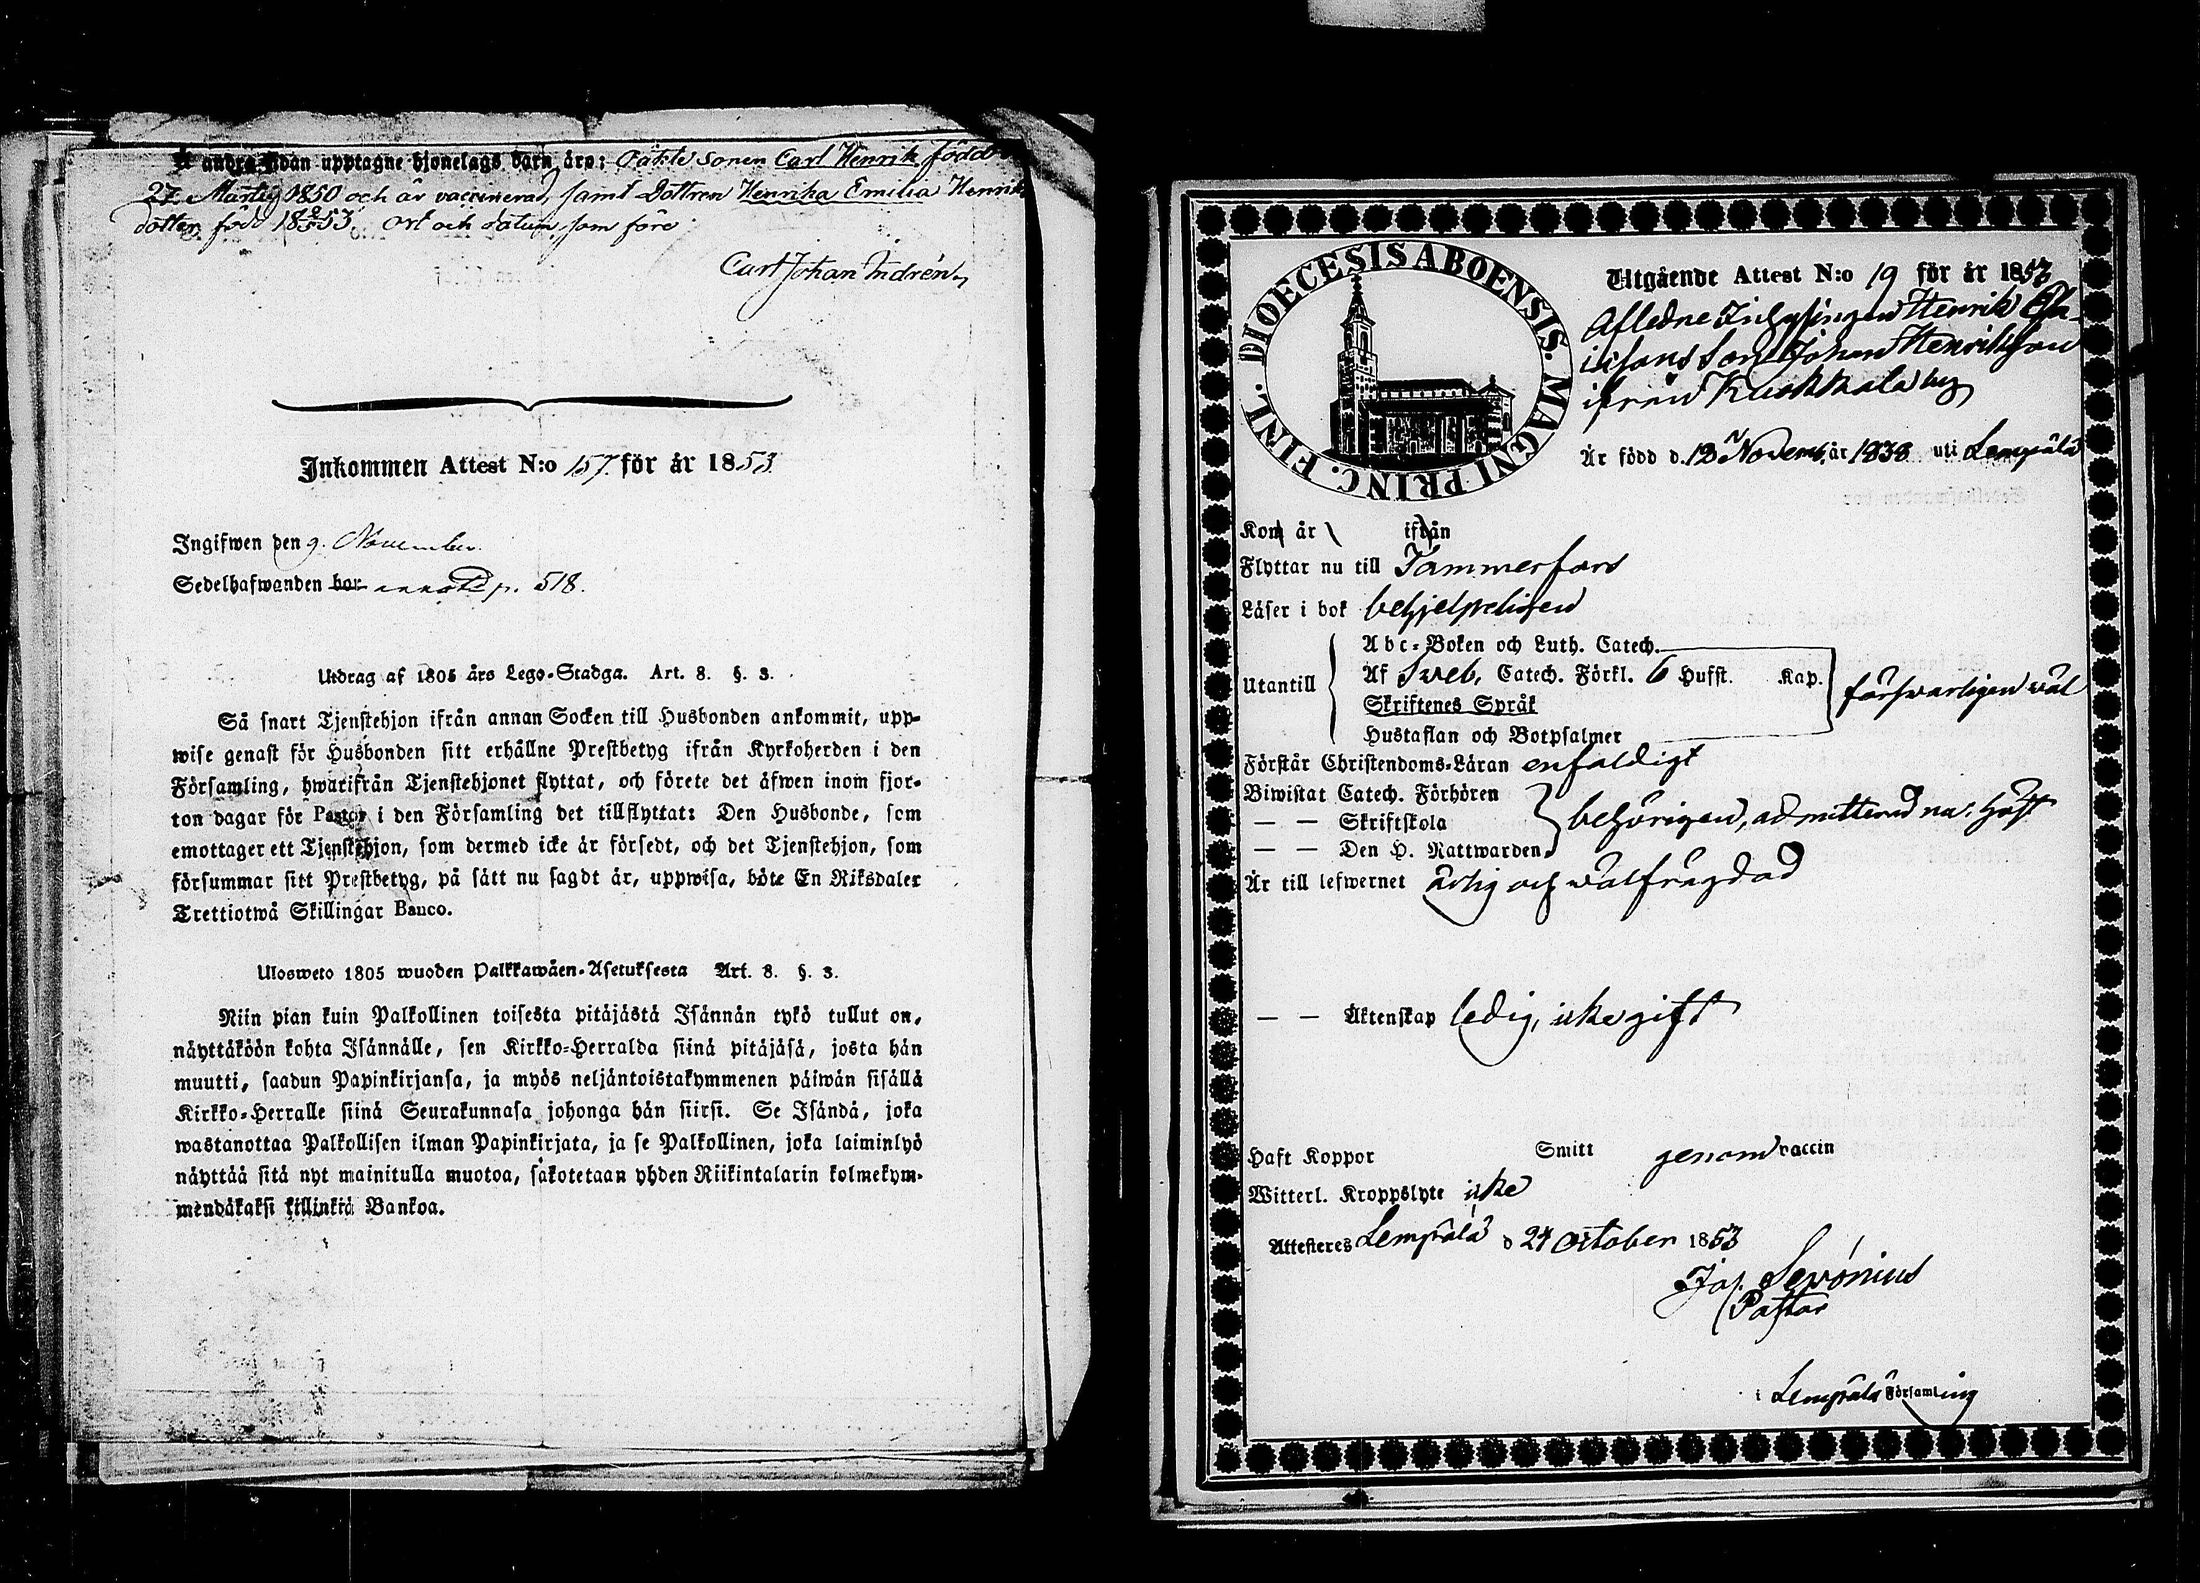 Å andra sidan upptagne hjonelags barn äro: äkte sonen Carl Henrik född
27 Martij 1850 och är vaccinerad, samt Dottren Henrika Emilia Henriks
dotter född 18 2/2 53. ort och datum som före
Carl Johan Indrén
Inkommen Attest N:o 157 för år 1853
Ingifwen den 9. November.
Sedelhafwanden bor p. 518.
Utdrag af 1805 års Lego-Stadga. Art. 8. §. 3.
Så snart Tjenstehjon ifrån annan Socken till Husbonden ankommit, upp-
wise genast för Husbonden sitt erhållne Prestbetyg ifrån Kyrkoherden i den
Församling, hwarifrån Tjenstehjonet flyttat, och förete det äfwen inom fjor-
ton dagar för Pastor i den Församling det tillflyttat: Den Husbonde, som
emottager ett Tjenstehjon, som dermed icke är försedt, och det Tjenstehjon, som
försummar sitt Prestbetyg, på sätt nu sagdt är, uppwisa, böte En Riksdaler
Trettiotwå Skillingar Banco.
Ulosweto 1805 wuoden Palkkawäen-Asetuksesta Art. 8. §. 3.
Niin pian kuin Palkollinen toisesta pitäjästä Isännän tykö tullut on,
näyttäköön kohta Isännälle, sen Kirkko-Herralda siinä pitäjäsä, josta hän
muutti, saadun Papinkirjansa, ja myös neljäntoistakymmenen päiwän sisällä
Kirkko-Herralle siinä Seurakunnasa johonga hän siirsi. Se Isändä, joka
wastanottaa Palkollisen ilman Papinkirjata, ja se Palkollinen, joka laiminlyö
näyttää sitä nyt mainitulla muotoa, sakotetaan yhden Riikintalarin kolmekym-
mendäkaksi killinkiä Bankoa.
DIOECESIS ABOENSIS. MAGNI PRINC. FINL.
Utgående Attest N:o 19 för år 1853
Afledne Inhysingen Henrik
Son Johan Henriksson
ifrån Kuokkala by
Är född d. 13 Novemb. år 1838 uti Lempälä
Kom år ifrån
Flyttar nu till Tammerfors
Läser i bok behjelpeligen
Utantill
Abc-Boken och Luth. Catech.
Af Sveb. Catech. Förkl. 6 Hufst. Kap.
Skriftenes Språk
Hustaflan och Botpsalmer
förswarligen wäl
Förstår Christendoms-Läran enfaldigt
Biwistat Catech. Förhören
— — Skriftskola
— — Den H. Nattwarden
behörigen, admitterad na. Höst
Är till lefwernet ärlig och wälfrägdad
— — Äktenskap ledig, icke gift
Haft Koppor Smitt genom vaccin
Witterl. Kroppslyte icke
Attesteres Lempälä d 24 October 1853
Jos. Sevónius
Pastor
i Lempälä Församling